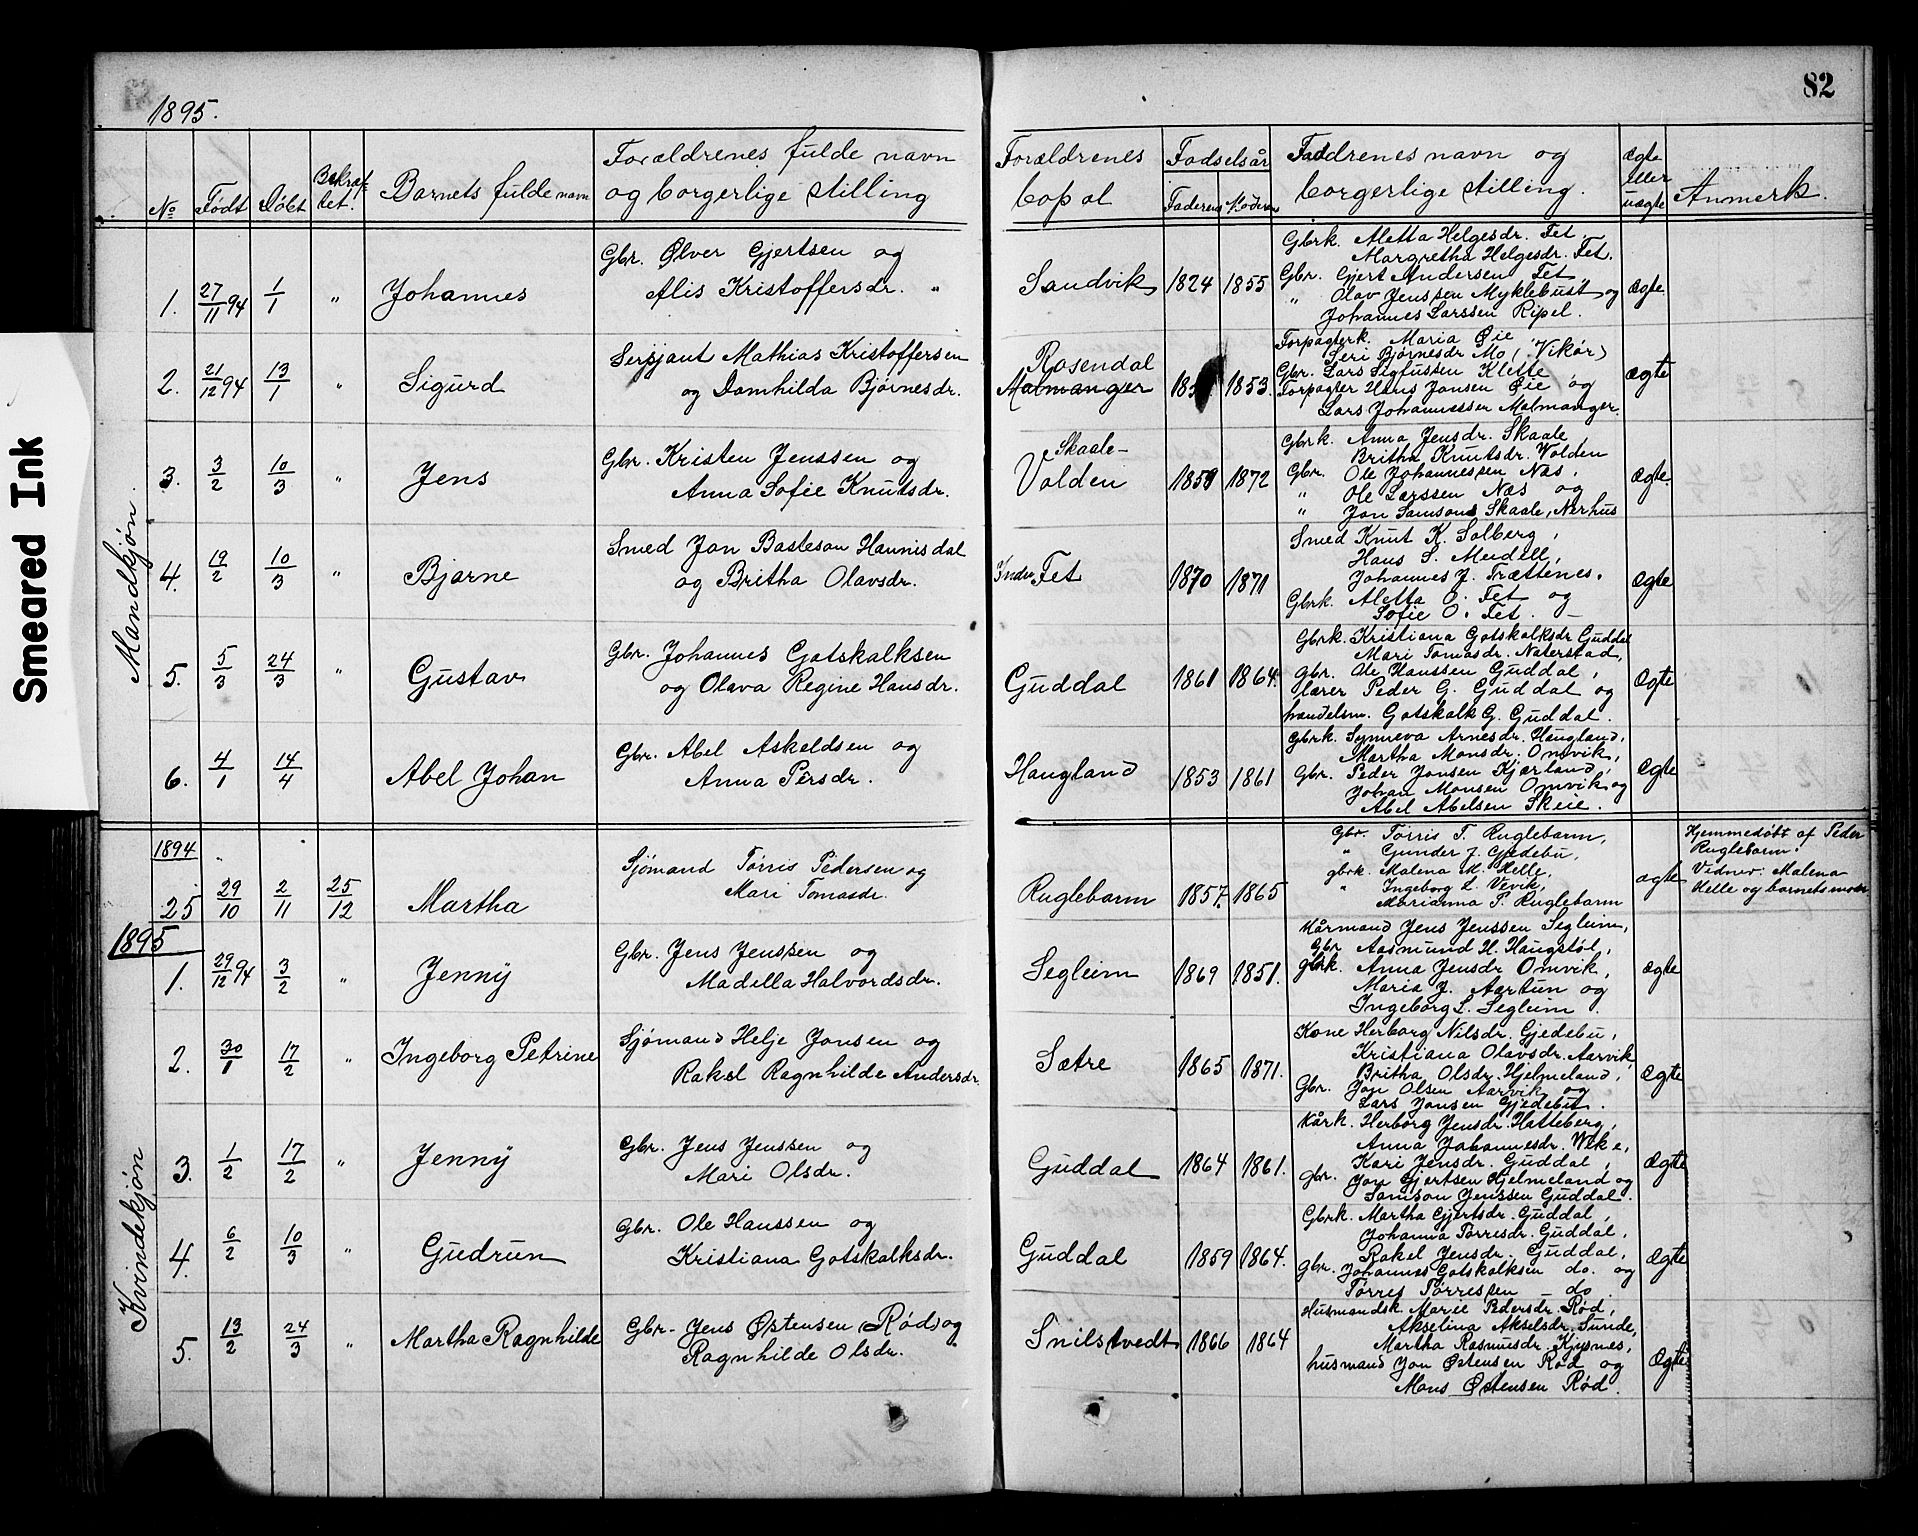 82
1895.
Smeared Ink
No Født Døbt Bekræftet. Barnets fulde navn Forældrenes fulde navn og borgerlige stilling Forældrenes bopæl Fødselsår Faderens Moderens Faddrenes navn og borgerlige stilling. Ægte eller uægte Anmerk.
Mandkjøn.
1. 27/11 94 1/1 " Johannes
Gbr. Ølver Gjertsen og
Alis Kristoffersdr. "
Sandvik 1824 1855
Gbrk. Aletta Helgesdr. Fet.
Margretha Helgesdr. Fet.
Gbr. Gjert Andersen Fet
" Olav Jenssen Myklebust og
Johannes Larssen Ripel.
ægte
2. 21/12 94 13/1 " Sigurd
Sersjant Mathias Kristoffersen
og Domhilda Bjørnesdr.
Rosendal
Malmanger 1853.
Forpagterk. Maria Øie,
Seri Bjørnesdr Mo (Vikør)
Gbr. Lars Sigfussen Klette
Forpagter Hans Jonsen Øie og
Lars Johannessen Malmanger.
ægte
3. 3/2 10/3 " Jens
Gbr. Kristen Jenssen og
Anna Sofie Knutsdr.
Skaale-
Volden 1859 1872
Gbrk. Anna Jensdr. Skaale,
Britha Knutsdr. Volden
Gbr. Ole Johannessen Næs,
" Ole Larssen Næs og
" Jon Samsons Skaale, Nerhus
ægte.
4. 19/2 10/3 " Bjarne
Smed Jon Bastesøn Hannisdal
og Britha Olavsdr.
Indre Fet 1870 1871
Smed Knut K. Solberg,
Hans S. Meidell,
Johannes J. Trættenes.
Gbrk. Aletta O. Fet og
Sofie O. Fet. –
Ægte
5. 5/3 24/3 " Gustav
Gbr. Johannes Gotskalksen
og Olava Regine Hansdr.
Guddal 1861 1864.
Gbrk. Kristiana Gotskalksdr Guddal
Mari Tomasdr. Naterstad,
gbr. Ole Hanssen Guddal,
lærer Peder G. Guddal og
handelsm. Gotskalk G. Guddal.
Ægte
6. 4/1 14/4 Abel Johan
Gbr. Abel Askeldsen og
Anna Persdr.
Haugland 1853 1861
Gbrk. Synneva Arnesdr. Haugland,
Martha Monsdr. Omvik,
Gbr. Peder Jonsen Kjærland,
Johan Monsen Omvik og
Abel Abelsen Skeie.
Ægte
1894
25 29/10 2/11 25/12 Martha
Sjømand Tørris Pedersen og
Mari Tomasdr.
Ruglebarm 1857. 1865
Gbr. Tørris T. Ruglebarm,
" Gunder J. Gjedebu,
gbrk. Malena M. Helle,
" Ingeborg L. Vevik,
Marianna P. Ruglebarm
ægte
Hjemmedøbt af Peder
Ruglebarm.
Vidner: Malena
Helle og barnets moder
1895
Kvindekjøn
1. 29/12 94 3/2 " Jenny
Gbr. Jens Jenssen og
Madella Halvordsdr.
Segleim 1869 1851.
Kårmand Jens Jenssen Segleim,
Gbr Aasmund H. Haugstøl,
gbrk. Anna Jensdr Omvik,
Maria J. Aartun og
Ingeborg L. Segleim.
ægte
2. 30/1 17/2 " Ingeborg Petrine
Sjømand Helje Jonsen og
Rakel Ragnhilde Andersdr.
Sætre 1865 1871.
Kone Herborg Nilsdr. Gjedebu,
Kristiana Olavsdr. Aarvik,
Britha Olsdr. Hjelmeland,
Gbr. Jon Olsen Aarvik og
Lars Jonsen Gjedebu.
Ægte
3. 1/2 17/2 " Jenny
Gbr. Jens Jenssen og
Mari Olsdr.
Guddal 1864 1861.
Kårk. Herborg Jensdr. Hatteberg,
Anna Johannesdr. Wike,
Kari Jensdr. Guddal,
gbr. Jon Gjertsen Hjelmeland og
Samson Jenssen Guddal.
Ægte
4. 6/2 10/3 " Gudrun
Gbr. Ole Hanssen og
Kristiana Gotskalksdr.
Guddal 1859 1864.
Gbrk. Martha Gjertsdr. Guddal,
Johanna Tørresdr. Guddal,
Rakel Jensdr. Guddal,
gbr. Johannes Gotskalksen do. og
Tørres Tørressen – do.
Ægte
5. 13/2 24/3 " Martha Ragnhilde
Gbr. Jens Østensen (Rød) og
Ragnhilde Olsdr.
Snilstvedt 1866 1864
Husmandsk. Marie Pedersdr. Rød,
Akselina Akselsdr. Sunde,
Martha Rasmusdr. Kjysnes,
husmand Jon Østensen Rød og
Mons Østensen Rød.
Ægte